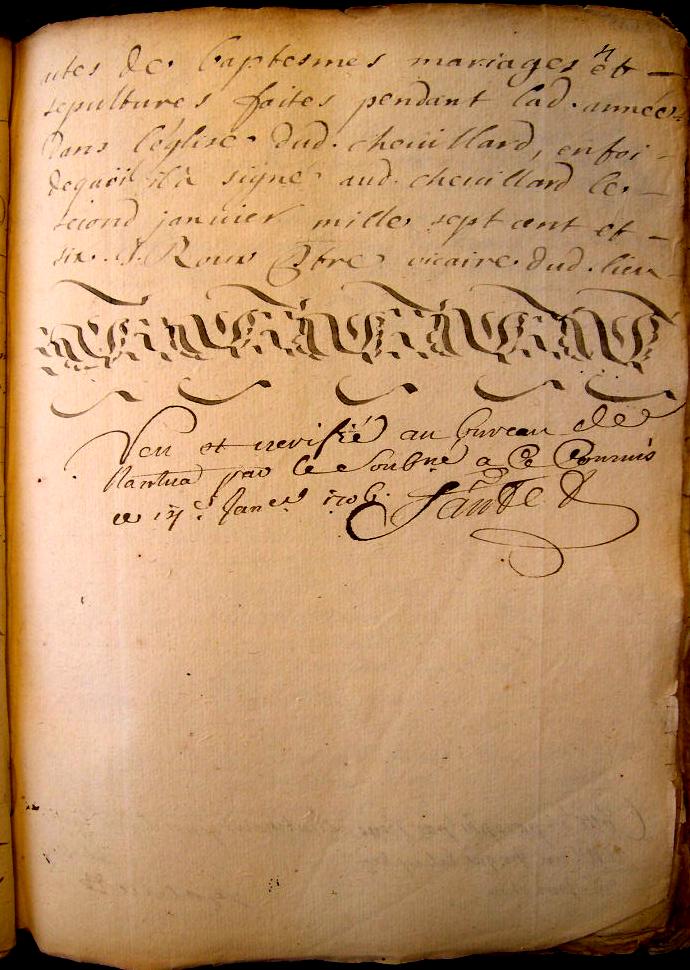 actes de baptesmes mariages et
sepultures faites pendant lad. année
Dans l'église dud. cheuillard, en foi
dequoi il a signé aud. cheuillard le
second januier mille sept cent et
six. J. Roux Ptre vicaire dud. lieu
Veu et verifié au bureau de
Nantua par le Soubné a ce Commis
ce 17e Janer 1706.